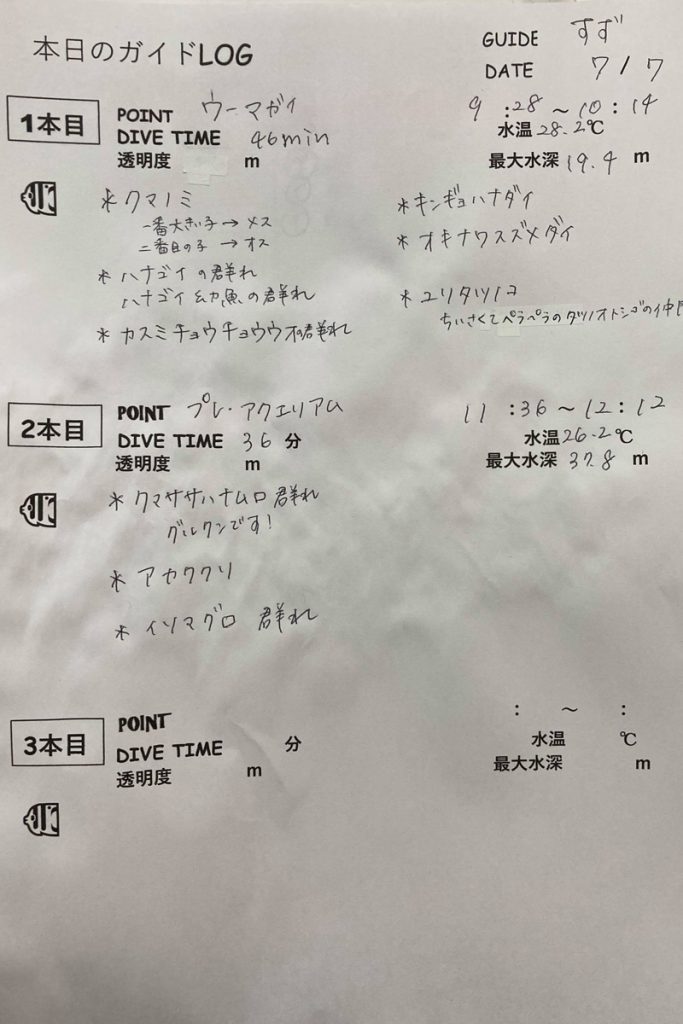 本日のガイドLOG
GUIDE すず
DATE 7/7
1本目
POINT ウーマガイ
DIVE TIME 46min
透明度 m
9:28～10:14
水温28.2℃
最大水深19.4m
*クマノミ
一番大きい子→メス
二番目の子→オス
*ハナゴイの群れ
ハナゴイ幼魚の群れ
*カスミチョウチョウウオの群れ
*キンギョハナダイ
*オキナワスズメダイ
*ユリタツノコ
ちいさくてペラペラのタツノオトシゴの仲
2本目
POINT プレ・アクエリアム
DIVE TIME 36分
透明度 m
11:36～12:12
水温26.2℃
最大水深37.8m
*クマササハナムロ群れ
グルクンです!
*アカククリ
*イソマグロ 群れ
3本目
POINT
DIVE TIME 分
透明度 m
: ～ :
水温 ℃
最大水深 m